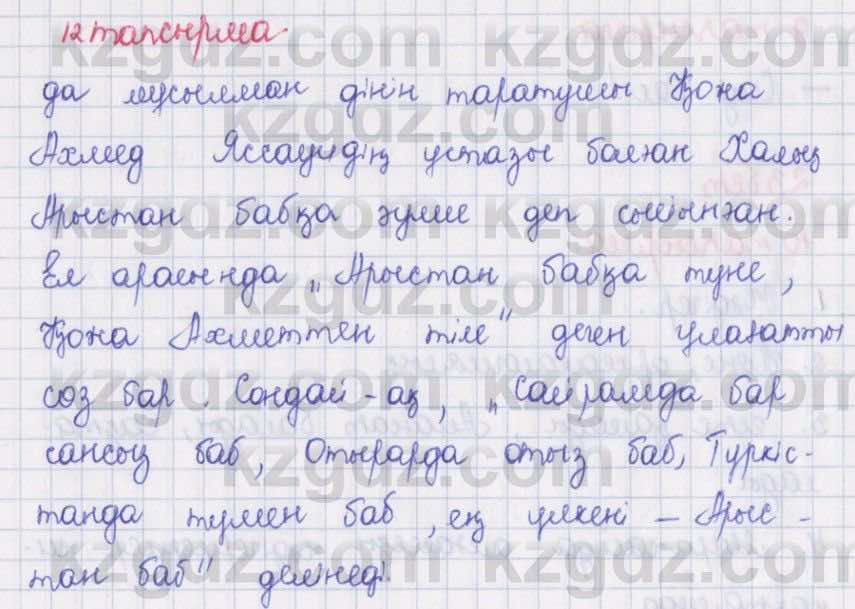 12 тапсырма.
да мұсылман дінін таратушы Қожа
Ахмед Яссауидің ұстазы болған Халық
Арыстан бабқа әулие деп сыйынған.
Ел арасында „Арыстан бабқа түне,
Қожа Ахметтен тіле" деген ұлағатты
сөз бар. Сондай-ақ, „Сайрамда бар
сансыз баб, Отырарда отыз баб, Түркіс-
танда түмен баб, ең үлкені – Арыс-
тан баб" делінеді.
kzgdz.com